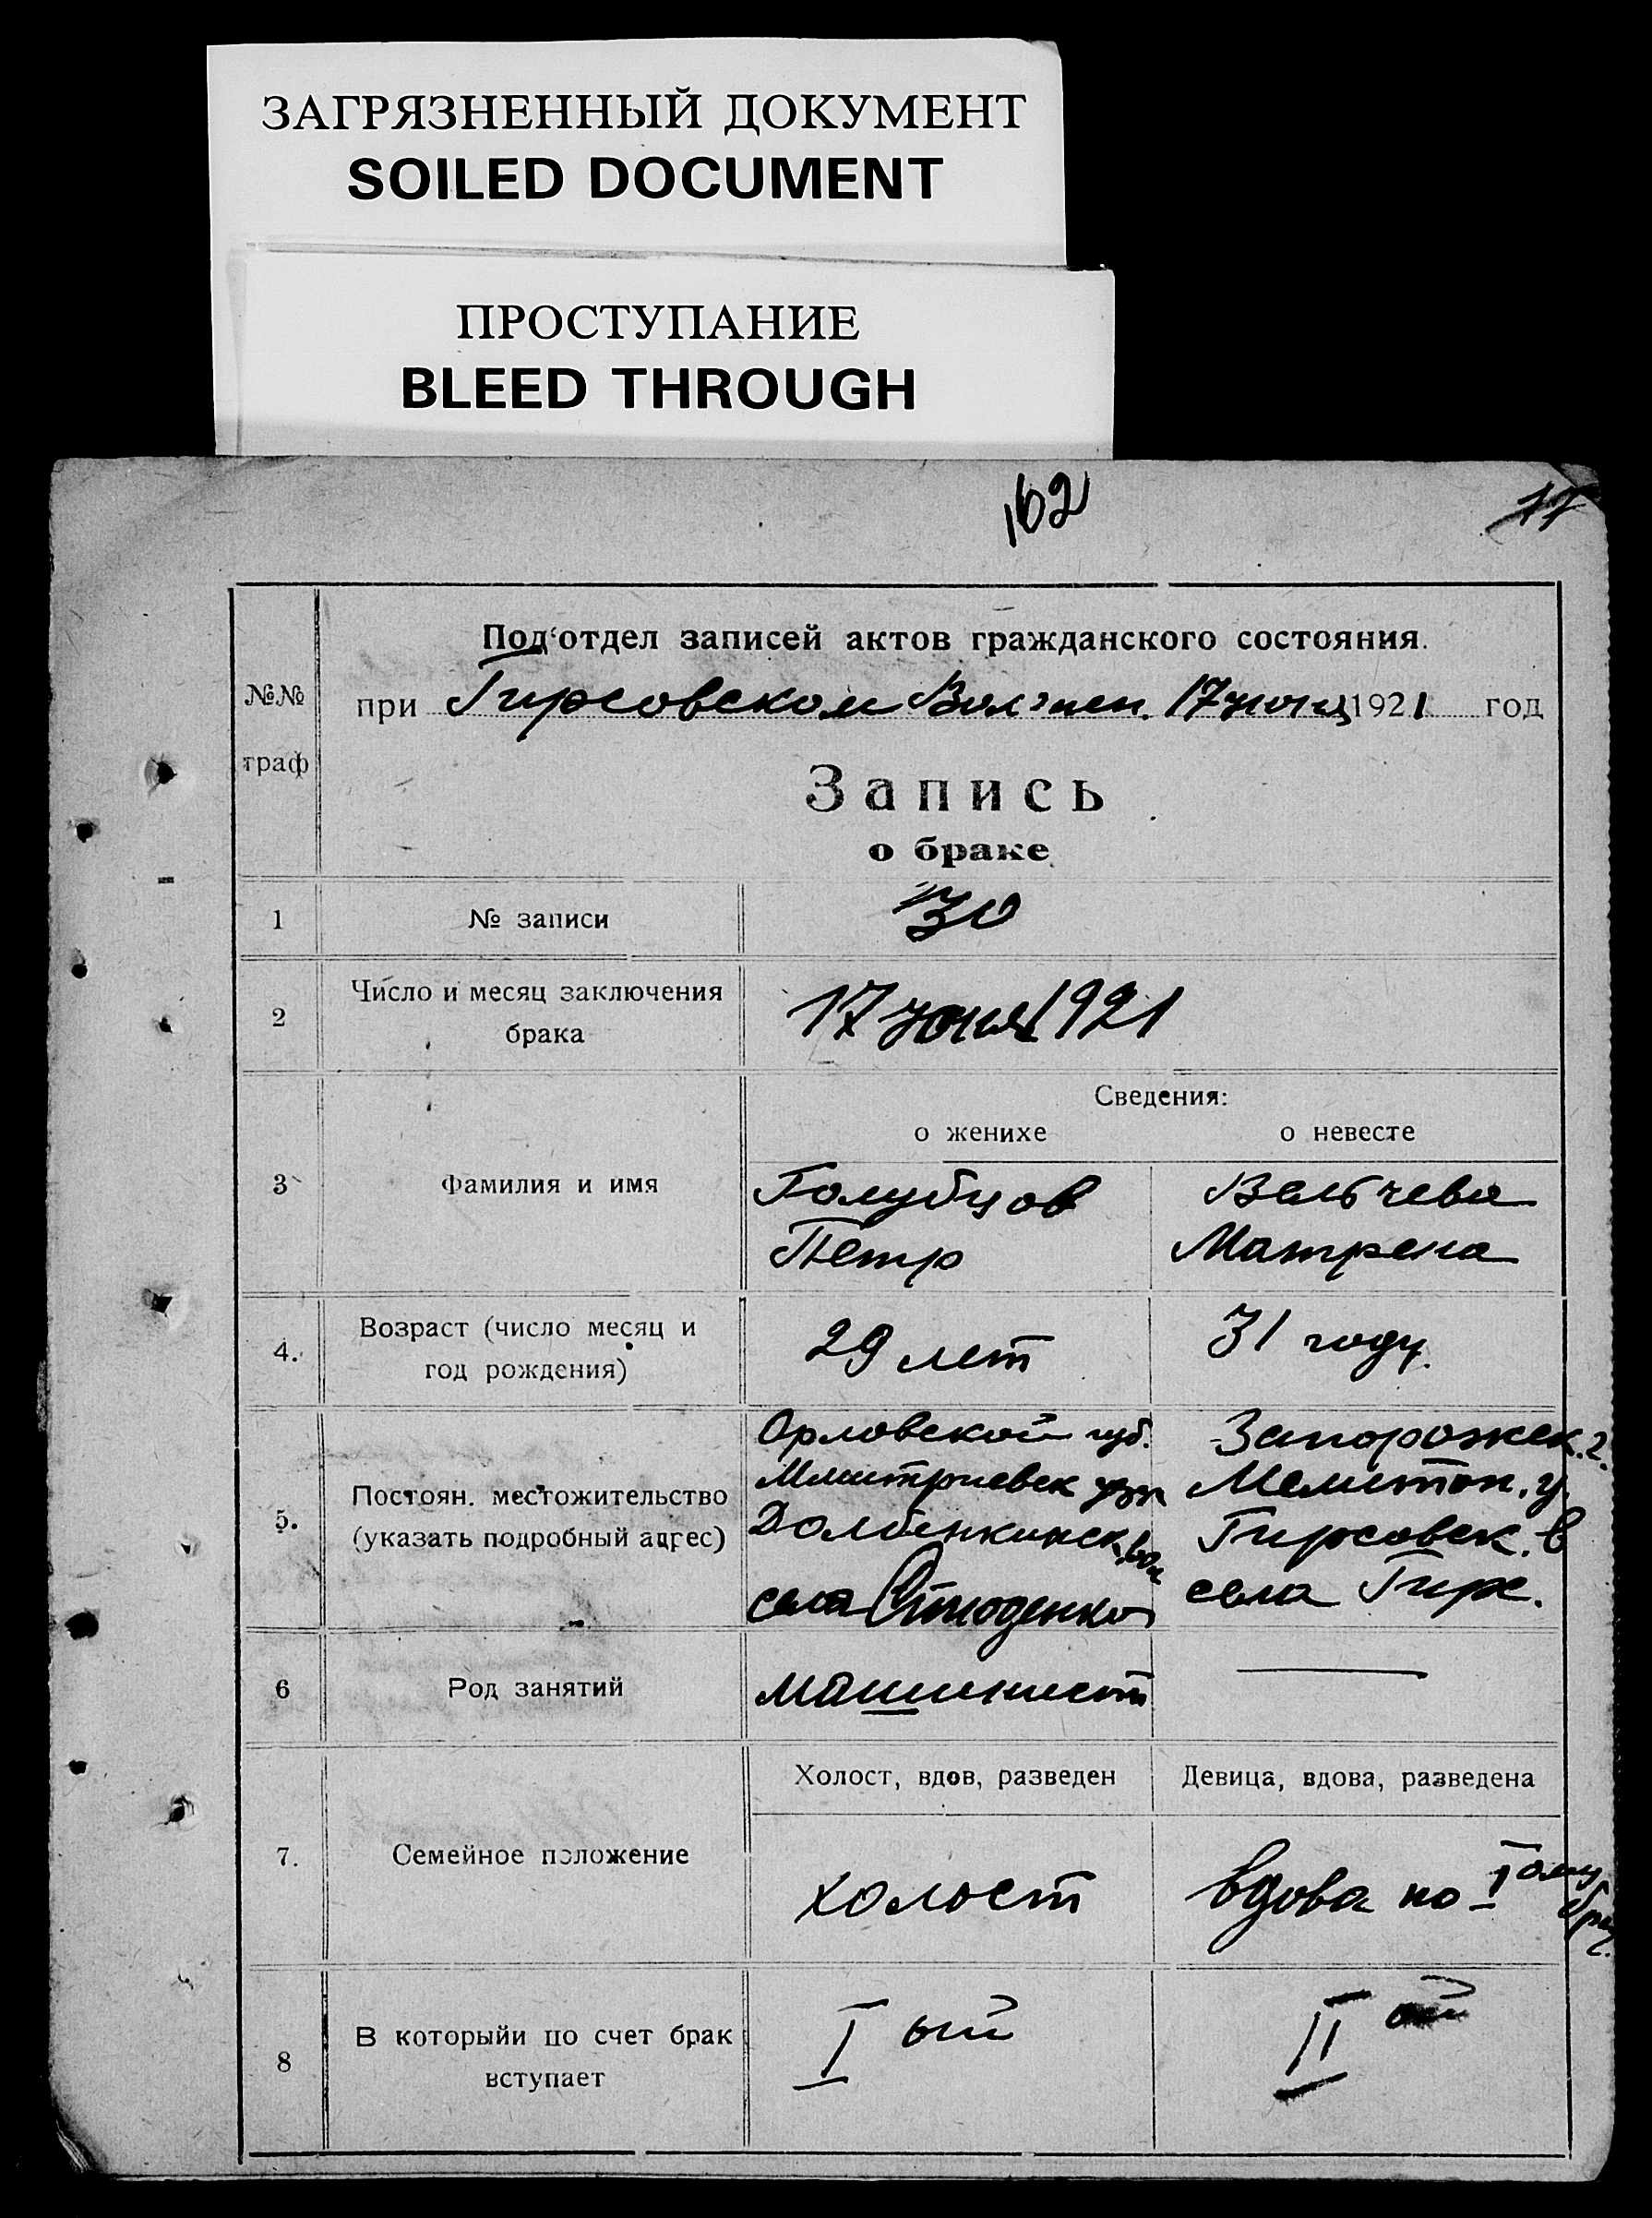 ЗАГРЯЗНЕННЫЙ ДОКУМЕНТ
SOILED DOCUMENT
ПРОСТУПАНИЕ
BLEED THROUGH
162
Под‘отдел записей актов гражданского состояния.
№№
граф
при Гирсовском Вол 17 июня 1921 год
Запись
о браке
1 № записи 30
2 Число и месяц заключения
брака
17 июня 1921
Сведения:
о женихе о невесте
3 Фамилия и имя
Голубцов Вельчева
Петр Матрена
4. Возраст (число месяц и
год рождения)
29 лет 31 году.
5. Постоян. местожительство
(указать подробный адрес)
Орловской губ. Запорожск. г.
Мелитоп. у.
Долбенкинск. вол Гирсовск. в
села села Гирс.
6 Род занятий машинист —
Холост, вдов, разведен Девица, вдова, разведена
7. Семейное положение
холост вдова по I ому браку
8 В которыйи по счет брак
вступает
I ый II ой